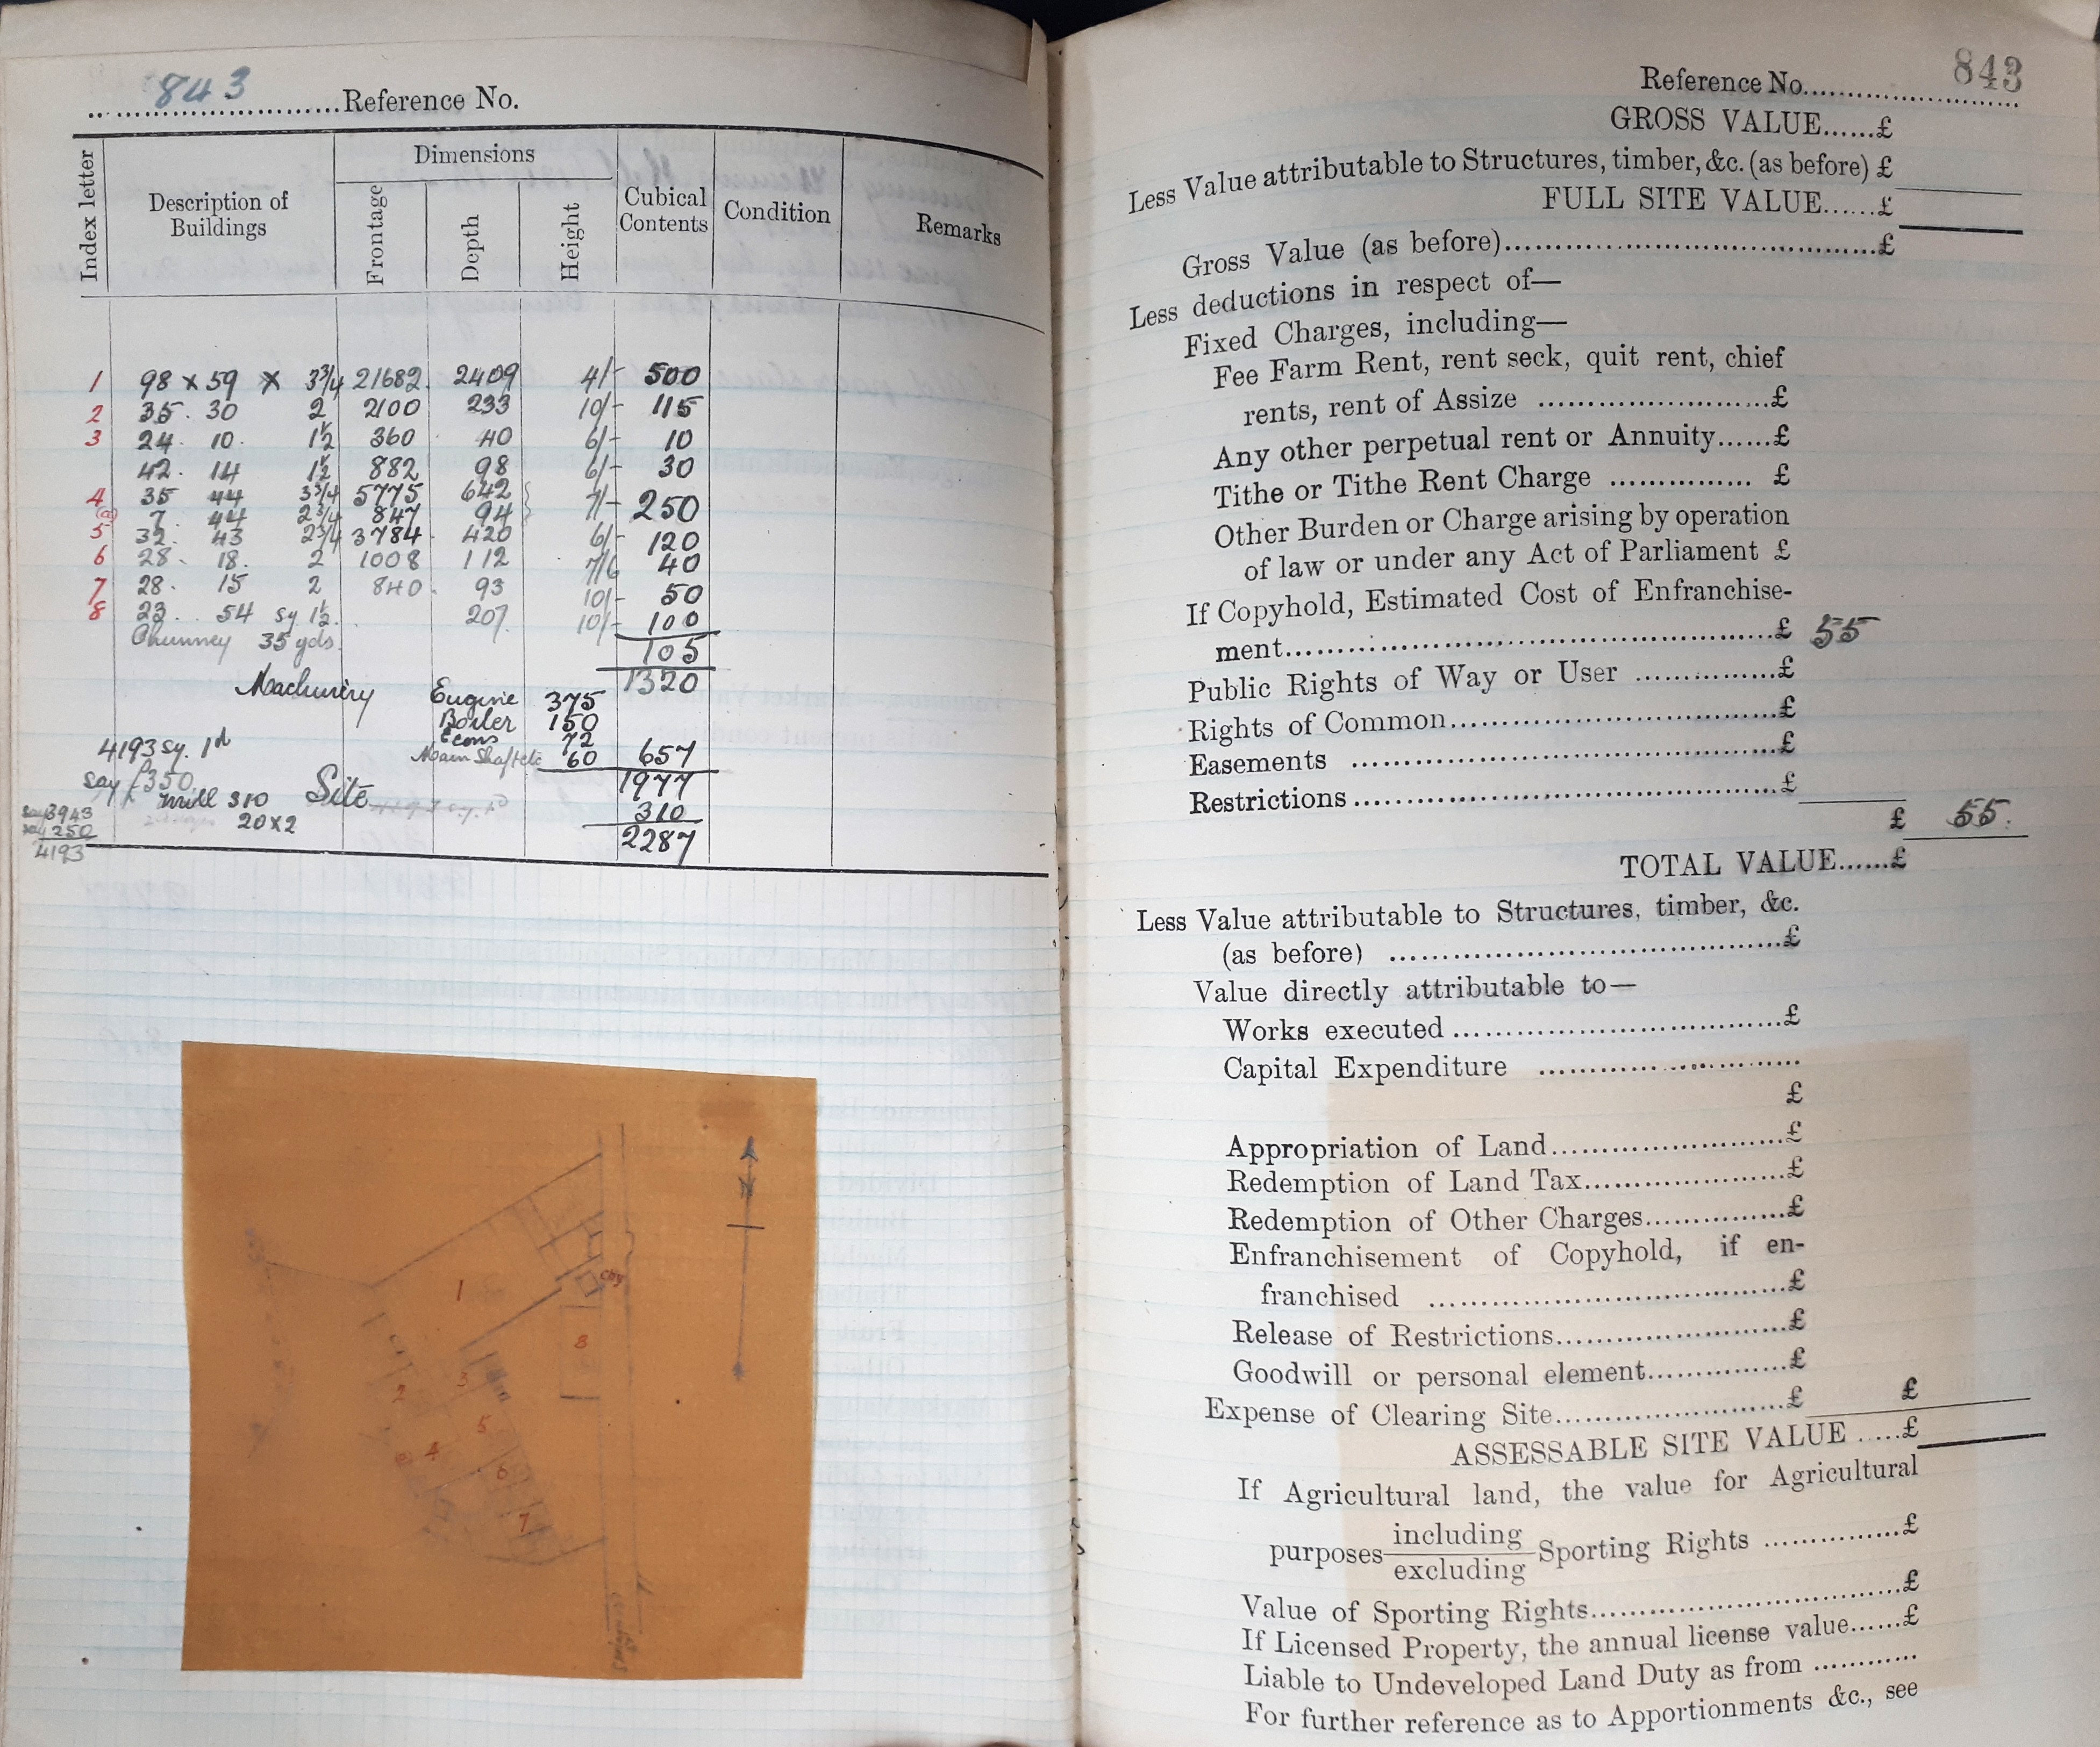 843 Reference No.
Index letter
Description of Buildings
Dimensions
Frontage
Depth
Height
Cubical Contents
Condition
Remarks
1 98 x 59 x 3¾ 21682 2409 4/- 500
2 35. 30 2 2100 233 10/- 115
3 24. 10. 1½ 360 40 6/- 10
42. 14 1½ 882 98 6/- 30
4 35 44 3¾ 5775 642 } 7/- 250
(a) 7. 44 2¾ 847 94 }
5 32. 43 2¾ 3784 420 6/- 120
6 28. 18. 2 1008 112 7/6 40
7 28. 15 2 840. 93 10/- 50
8 23.. 54 sy 1½. 207. 10/- 100
Chimney 35 yds. 105
1320
Machinery Engine 375
Boiler 150
Econs 72
Main Shaft etc 60 657
4193 sy. 1d 1977
say £350. Site
Mill 310 310
20 x 2
2287
say 3943
say 250
4193
N
1
Chy
8
2
3
5
a 4
6
7
843
Reference No.
GROSS VALUE......£
Less Value attributable to Structures, timber, &c. (as before) £
FULL SITE VALUE......£
Gross Value (as before)..........£
Less deductions in respect of—
Fixed Charges, including—
Fee Farm Rent, rent seck, quit rent, chief
rents, rent of Assize ..........£
Any other perpetual rent or Annuity......£
Tithe or Tithe Rent Charge .......... £
Other Burden or Charge arising by operation
of law or under any Act of Parliament £
If Copyhold, Estimated Cost of Enfranchise-
ment..........£ 55
Public Rights of Way or User ..........£
Rights of Common..........£
Easements ..........£
Restrictions..........£
£ 55.
TOTAL VALUE......£
Less Value attributable to Structures, timber, &c.
(as before) ..........£
Value directly attributable to—
Works executed..........£
Capital Expenditure ..........
£
Appropriation of Land..........£
Redemption of Land Tax..........£
Redemption of Other Charges..........£
Enfranchisement of Copyhold, if en-
franchised ..........£
Release of Restrictions..........£
Goodwill or personal element..........£
Expense of Clearing Site..........£ £
ASSESSABLE SITE VALUE .....£
If Agricultural land, the value for Agricultural
purposes including Sporting Rights ..........£
excluding
Value of Sporting Rights..........£
If Licensed Property, the annual license value......£
Liable to Undeveloped Land Duty as from ............
For further reference as to Apportionments &c., see